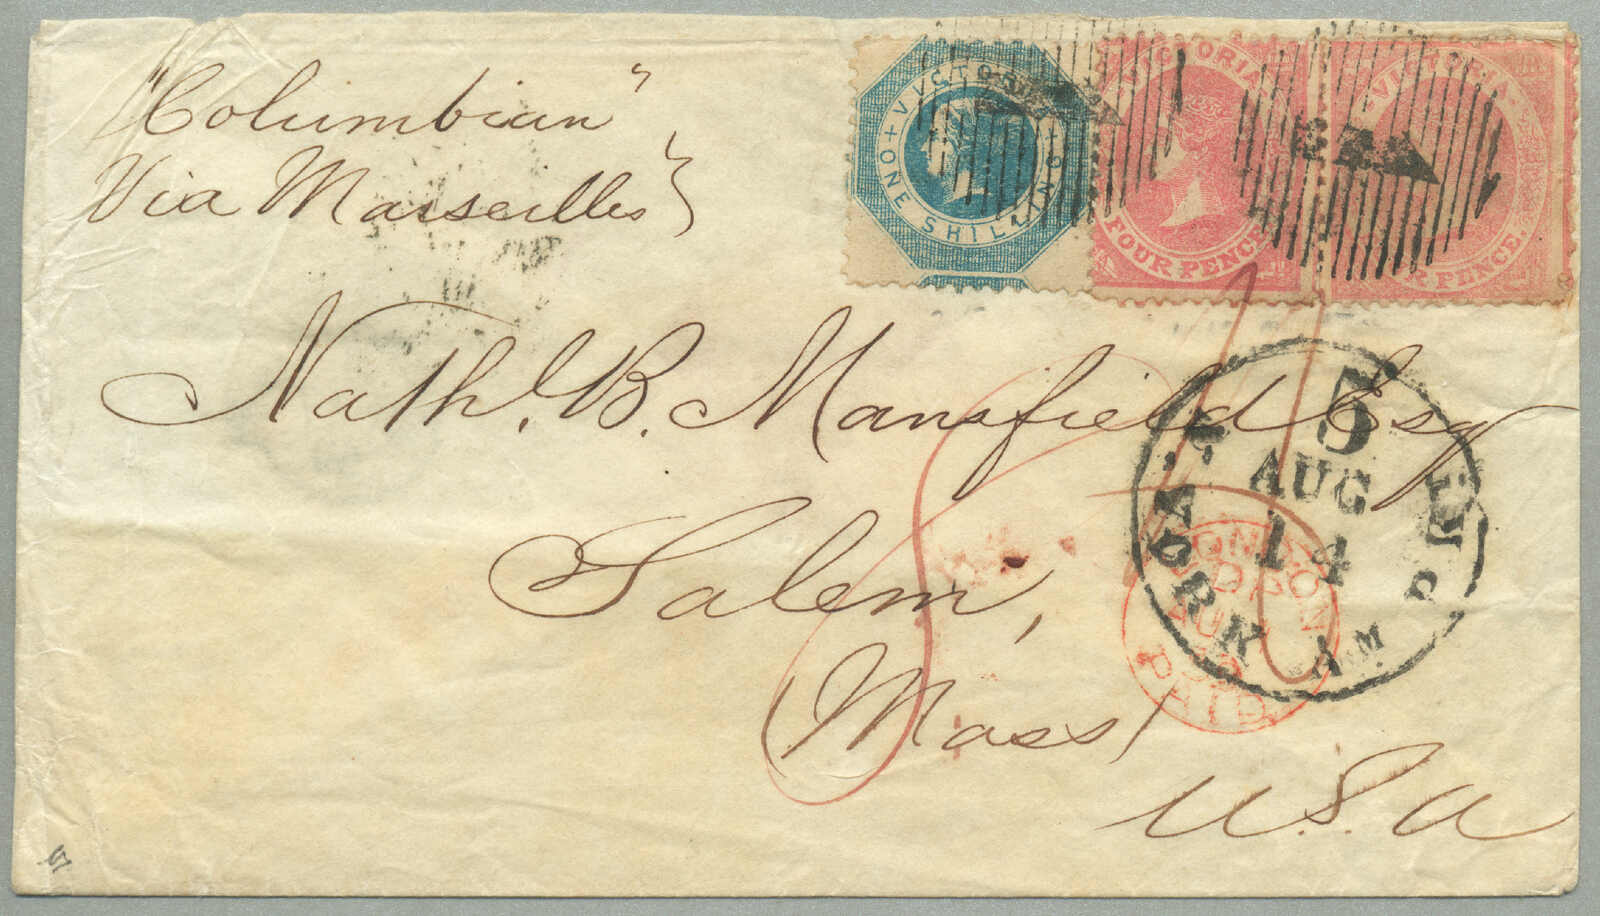 "Columbian"
Via Marseilles
VICTORIA
ONE SHILLING
VICTORIA
FOUR PENCE
VICTORIA
FOUR PENCE.
Nath. B. Mansfield Esq
Salem,
Mass
U.S.A
5
AUG
14
N. YORK AM PKT
LONDON
AU
PAID